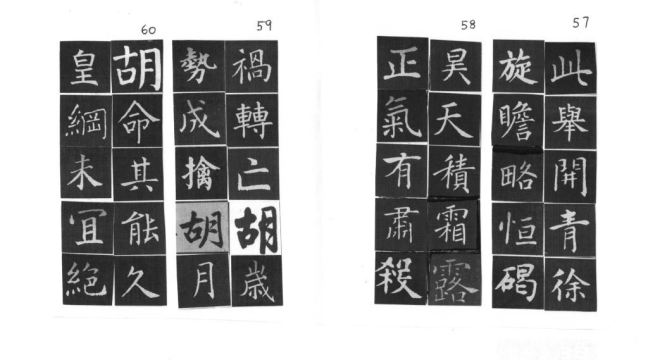 57
此舉開青徐
旋瞻略恒碣
58
昊天積霜露
正氣有肅殺
59
禍轉亡胡歲
勢成擒胡月
60
胡命其能久
皇綱未宜絶